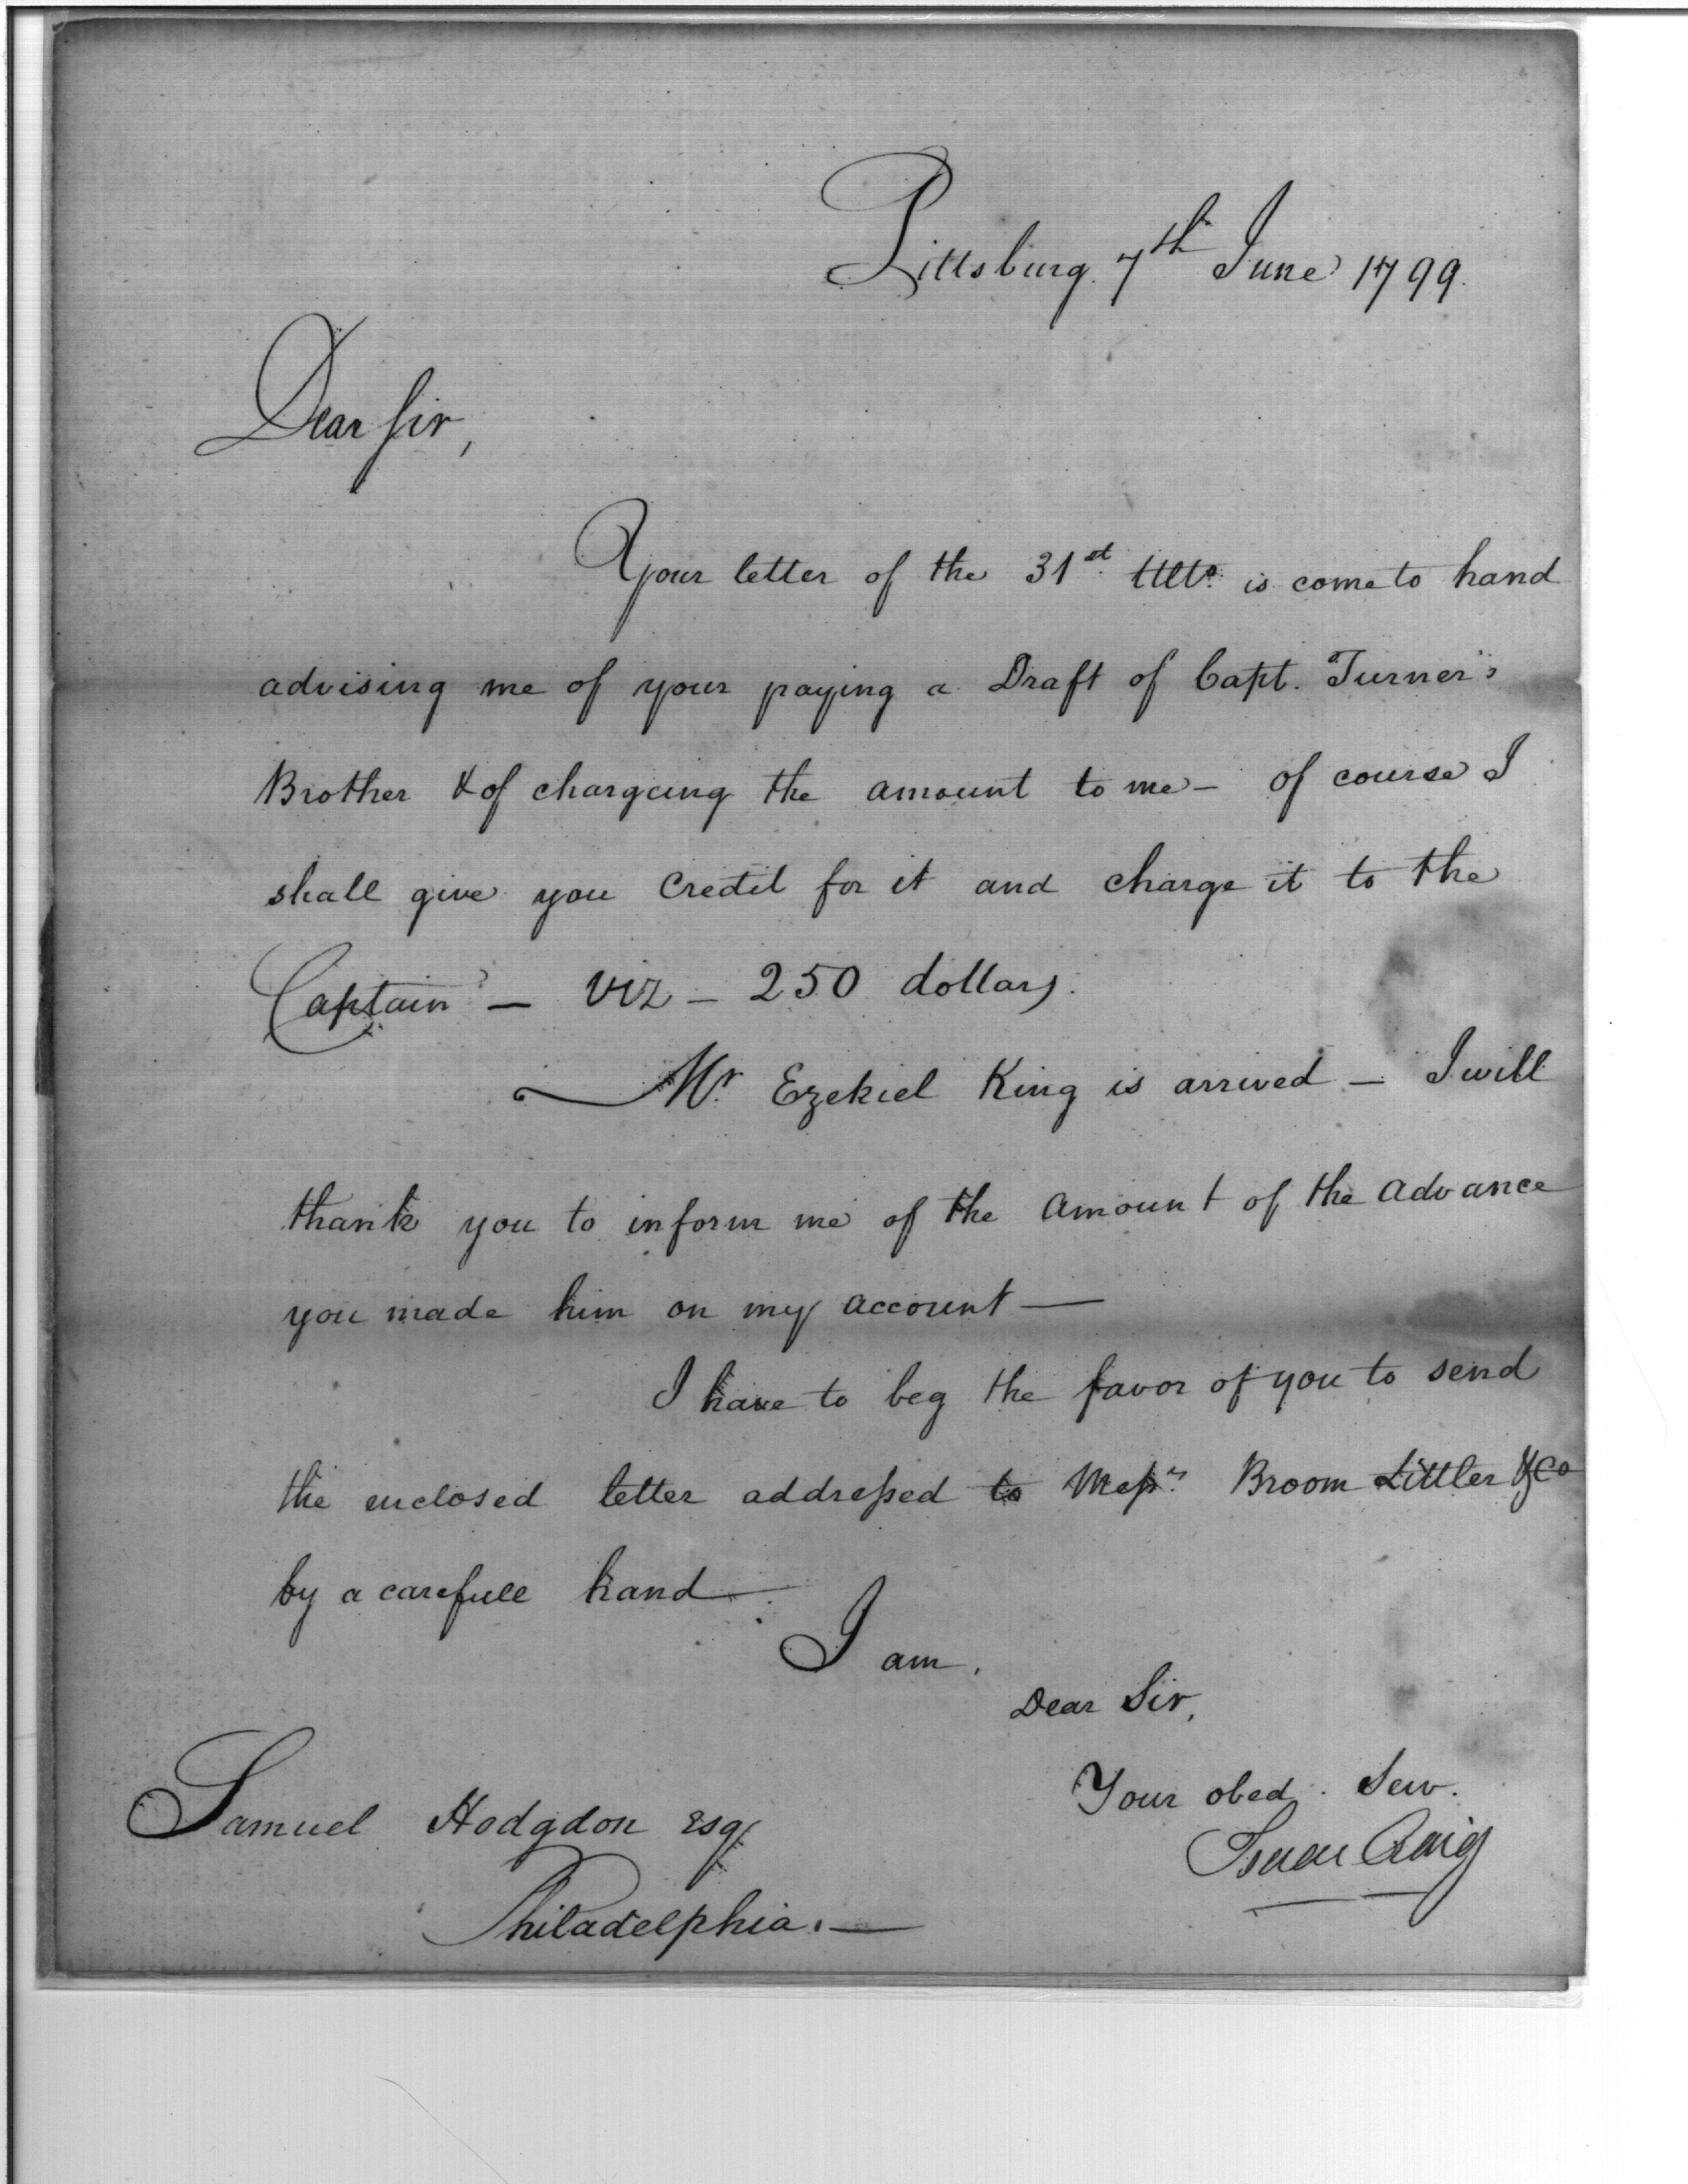 Pittsburg 7th June 1799.
Dear Sir,
Your letter of the 31st Ulto. is come to hand
advising me of your paying a Draft of Capt. Turner's
Brother & of chargeing the amount to me — of course I
shall give you Credit for it and charge it to the
Captain — viz — 250 dollars.
Mr. Ezekiel King is arrived — I will
thank you to inform me of the amount of the advance
you made him on my account —
I have to beg the favor of you to send
the enclosed letter addressed to Messrs. Broom Littler & Co
by a carefull hand —
I am,
Dear Sir,
Your obed. Serv.
Isaac Craig
Samuel Hodgdon Esq
Philadelphia. —